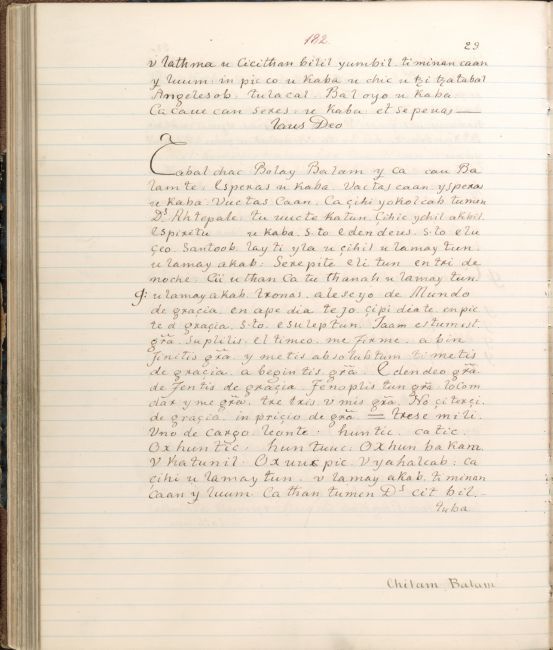 182
29
v lathma u Cicithan bilil yumbil. ti minan caan
y luum: in pic co u kaba u chic u tzi tzatabal
Angelesob: tulacal. Bal oyo u kaba
Ca cau can seres: u kaba et seperas—
laus Deo
Cabal chac Bolay Balam y ca cau Ba
lam te. Esperas u kaba. Vac tas caan. y speras
u kaba. Vuc tas Caan. Ca çihi yokol cab tumen
Ds. Ahtepale: tu uucte katun. Cihic ychil akbil.
Espiritu u kaba. S.to Eden deus. S.to elu
çeo. Santoob. lay ti yla u çihil u lamay tun.
u lamay akab: Sere pite eli tun en tri de
noche. Cii u than Ca tu thanah u lamay tun.
u lamay akab. tronas. a leseyo de Mundo
de gracia. en ape dia te jo. çipi deate. en pic
te d graçia. S.to. esulep tun. Jaam es tum est.
gra. Suplilis. el timeo. me firme. a bin
finitis gra. y metis absolubtum. ti metis
de graçia. a begin tis. gra. Edendeo gra.
de Fentis de graçia. Fenoplis tun gra. locom
dar y me gra. tre tris v mis gra. No çi terçi.
de graçia. in priçio de gra = trese mili.
Vno de cargo leonte. hun tic. ca tic.
Ox hun tic. hun tuuc. Ox hun bakam.
V katunil. Ox uuc pic. V yahalcab: ca
çihi u lamay tun. v lamay akab. ti minan
Caan y luum. Ca than tumen Ds cit bil.-
tuba
Chilam Balam